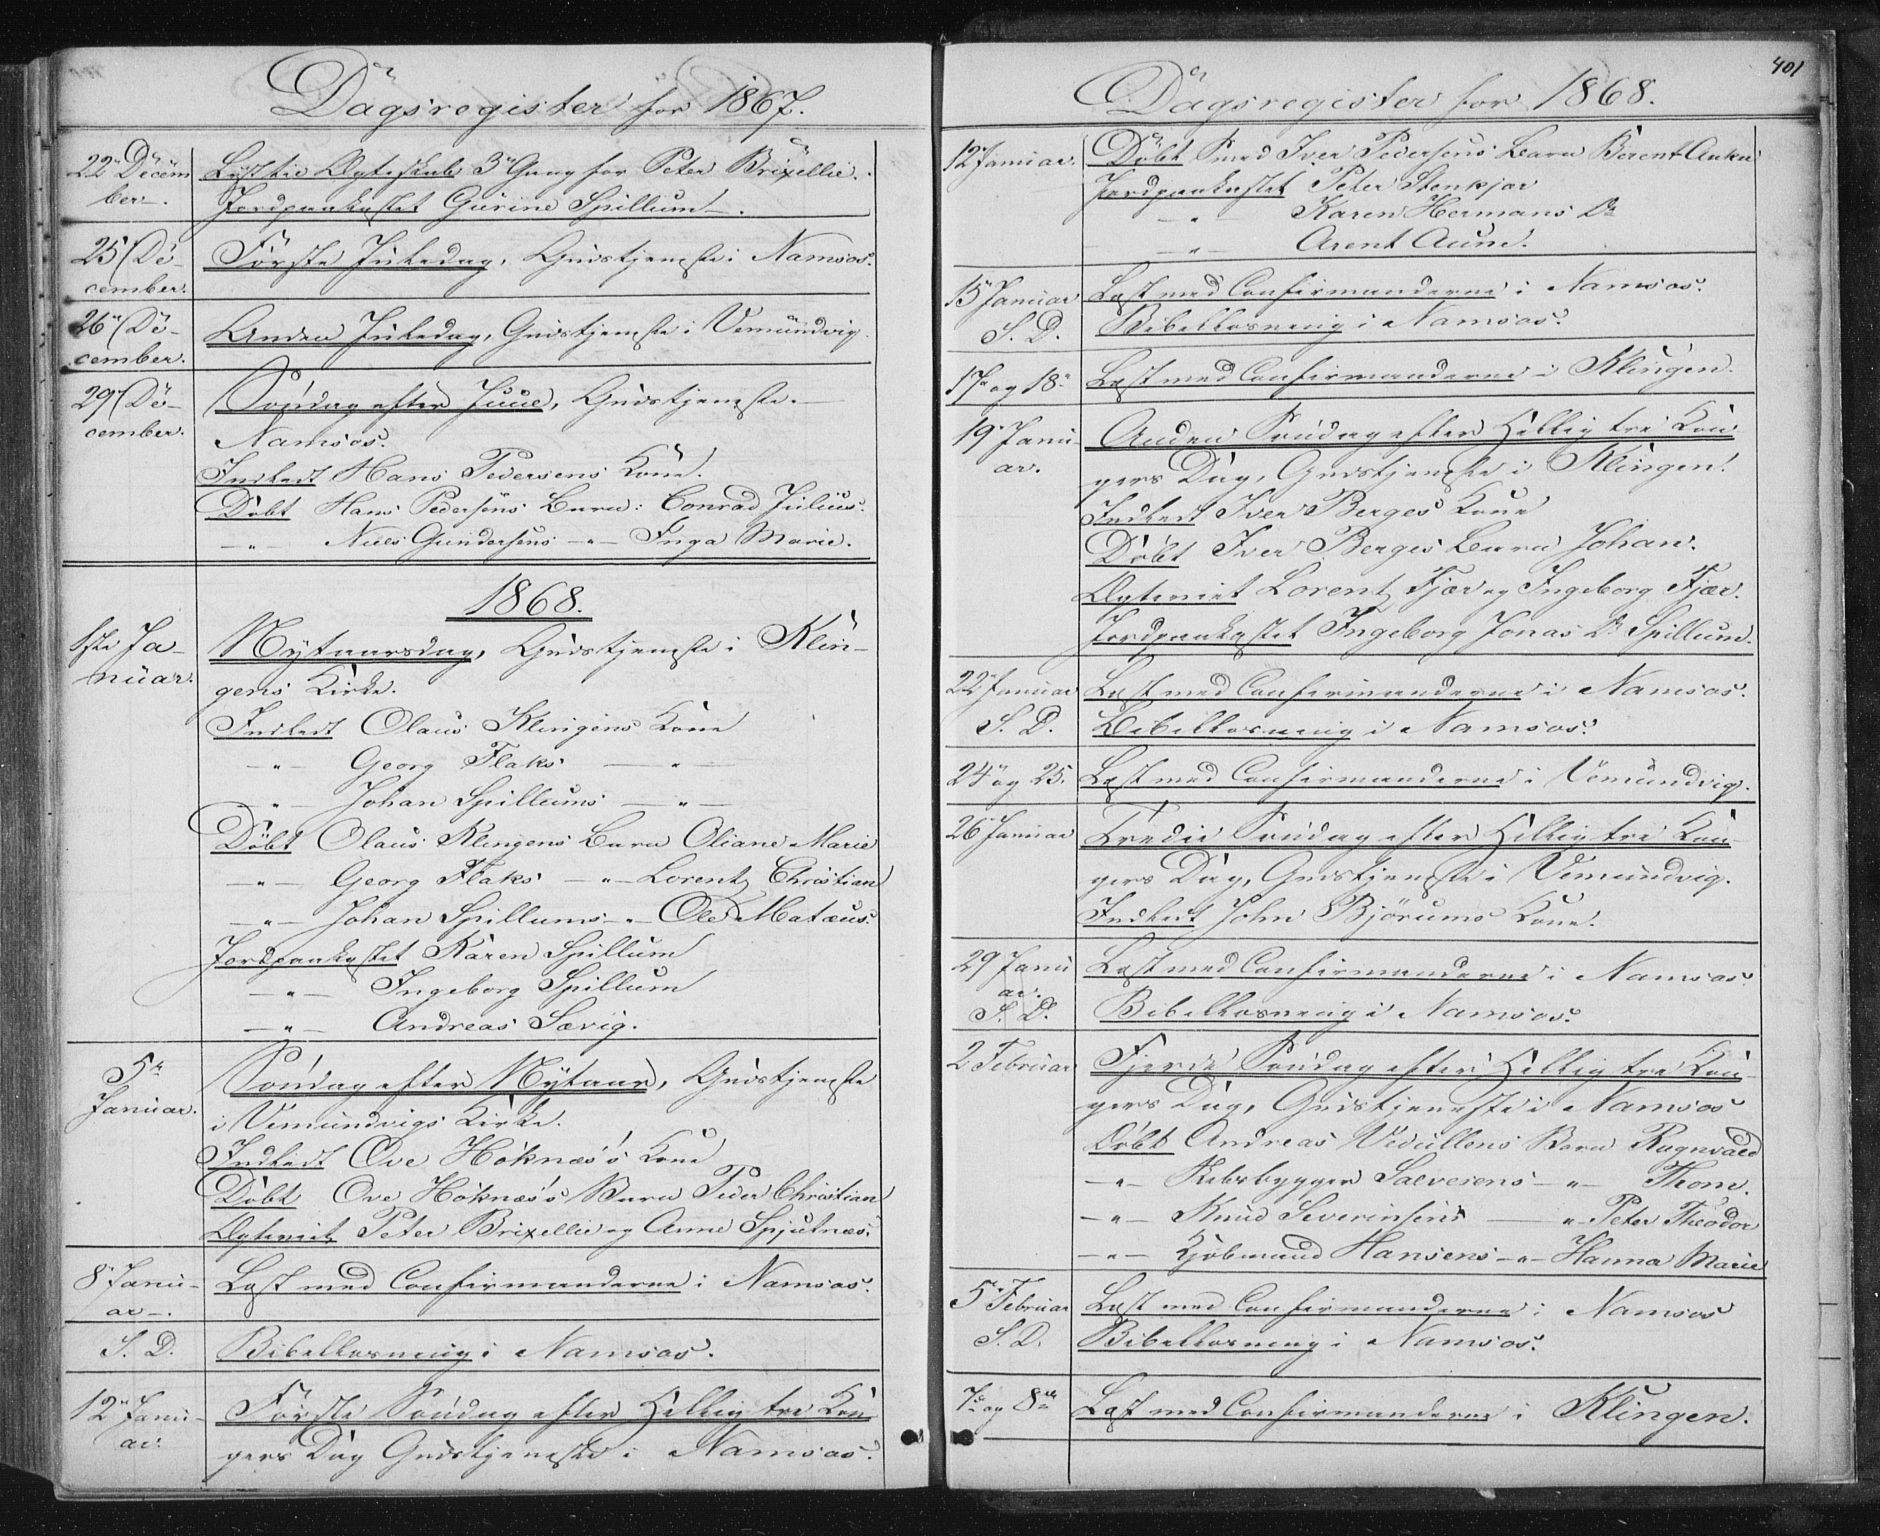 Dagsregister for 1867.
22 Decem Lyst til Ægteskab 3e Gang for Peter Brixellie.
ber. Jordpaakastet Gurine Spillum.
25 De- Første Juledag, Gudstjeneste i Namsos.
cember.
26 De- Anden Juledag, Gudstjeneste i Vemundvig.
cember.
29 De- Søndag efter Juul, Gudstjeneste
cember. Namsos.
Indledt Hans Pedersens Kone.
Døbt Hans Pedersens Barn: Conrad Julius.
— " — Niels Gundersens — " — Inga Marie.
1868.
1ste Ja- Nytaarsdag, Gudstjeneste i Klin-
nuar. gens Kirke.
Indledt Olaus Klingens Kone
— " — Georg Flaks — " —
— " — Johan Spillums — " —
Døbt Olaus Klingens Barn Oliane Marie
— " — Georg Flaks — " — Lorentz Christian
— " — Johan Spillums — " — Ole Matæus.
Jordpaakastet Karen Spillum
— " — Ingeborg Spillum
— " — Andreas Sævig.
5te Søndag efter Nytaar, Gudstjeneste
Januar. i Vemundvigs Kirke.
Indledt Ove Høknæs's Kone
Døbt Ove Høknæs's Barn Peder Christian
Ægteviet Peter Brixellie og Anne Spjutnæs.
8 Janu- Læst med Confirmanderne i Namsos.
ar.
S. D. Bibellæsning i Namsos.
12 Janu- Første Søndag efter Hellig tre Kon
ar. gers Dag Gudstjeneste i Namsos.
401
Dagsregister for 1868.
12 Januar. Døbt Smed Iver Pedersens Barn Berent Anken
Jordpaakastet Peter Stenkjær
— " — Karen Hermans Dr
— " — Arent Aune.
15 Januar Læst med Confirmanderne i Namsos.
S. D. Bibellæsning i Namsos.
17 og 18 Læst med Confirmanderne i Klingen.
19 Janu- Anden Søndag efter Hellig tre Kon
ar. gers Dag, Gudstjeneste i Klingen.
Indledt Iver Berges Kone
Døbt Iver Berges Barn Johan.
Ægteviet Lorentz Fjær og Ingeborg Fjær.
Jordpaakastet Ingeborg Jonas Dr Spillum.
22 Januar Læst med Confirmanderne i Namsos.
S. D. Bibellæsning i Namsos.
24 og 25. Læst med Confirmanderne i Vemundvig.
26 Januar Tredie Søndag efter Hellig tre Kon-
gers Dag, Gudstjeneste i Vemundvig.
Indledt John Bjørums Kone.
29 Janu Læst med Confirmanderne i Namsos.
ar.
S. D. Bibellæsning i Namsos.
2 Februar Fjerde Søndag efter Hellig tre Kon-
gers Dag, Gudstjeneste i Namsos
Døbt Andreas Barn Ragnvald
— " — Rebsbygger Salvesens — " — Thone.
— " — Knud Severinsens — " Peter Theodor
— " — Kjøbmand Hansens — " — Hanna Marie
5 Februar Læst med Confirmanderne i Namsos
S. D. Bibellæsning i Namsos.
7 og 8de Læst med Confirmanderne i Klingen.